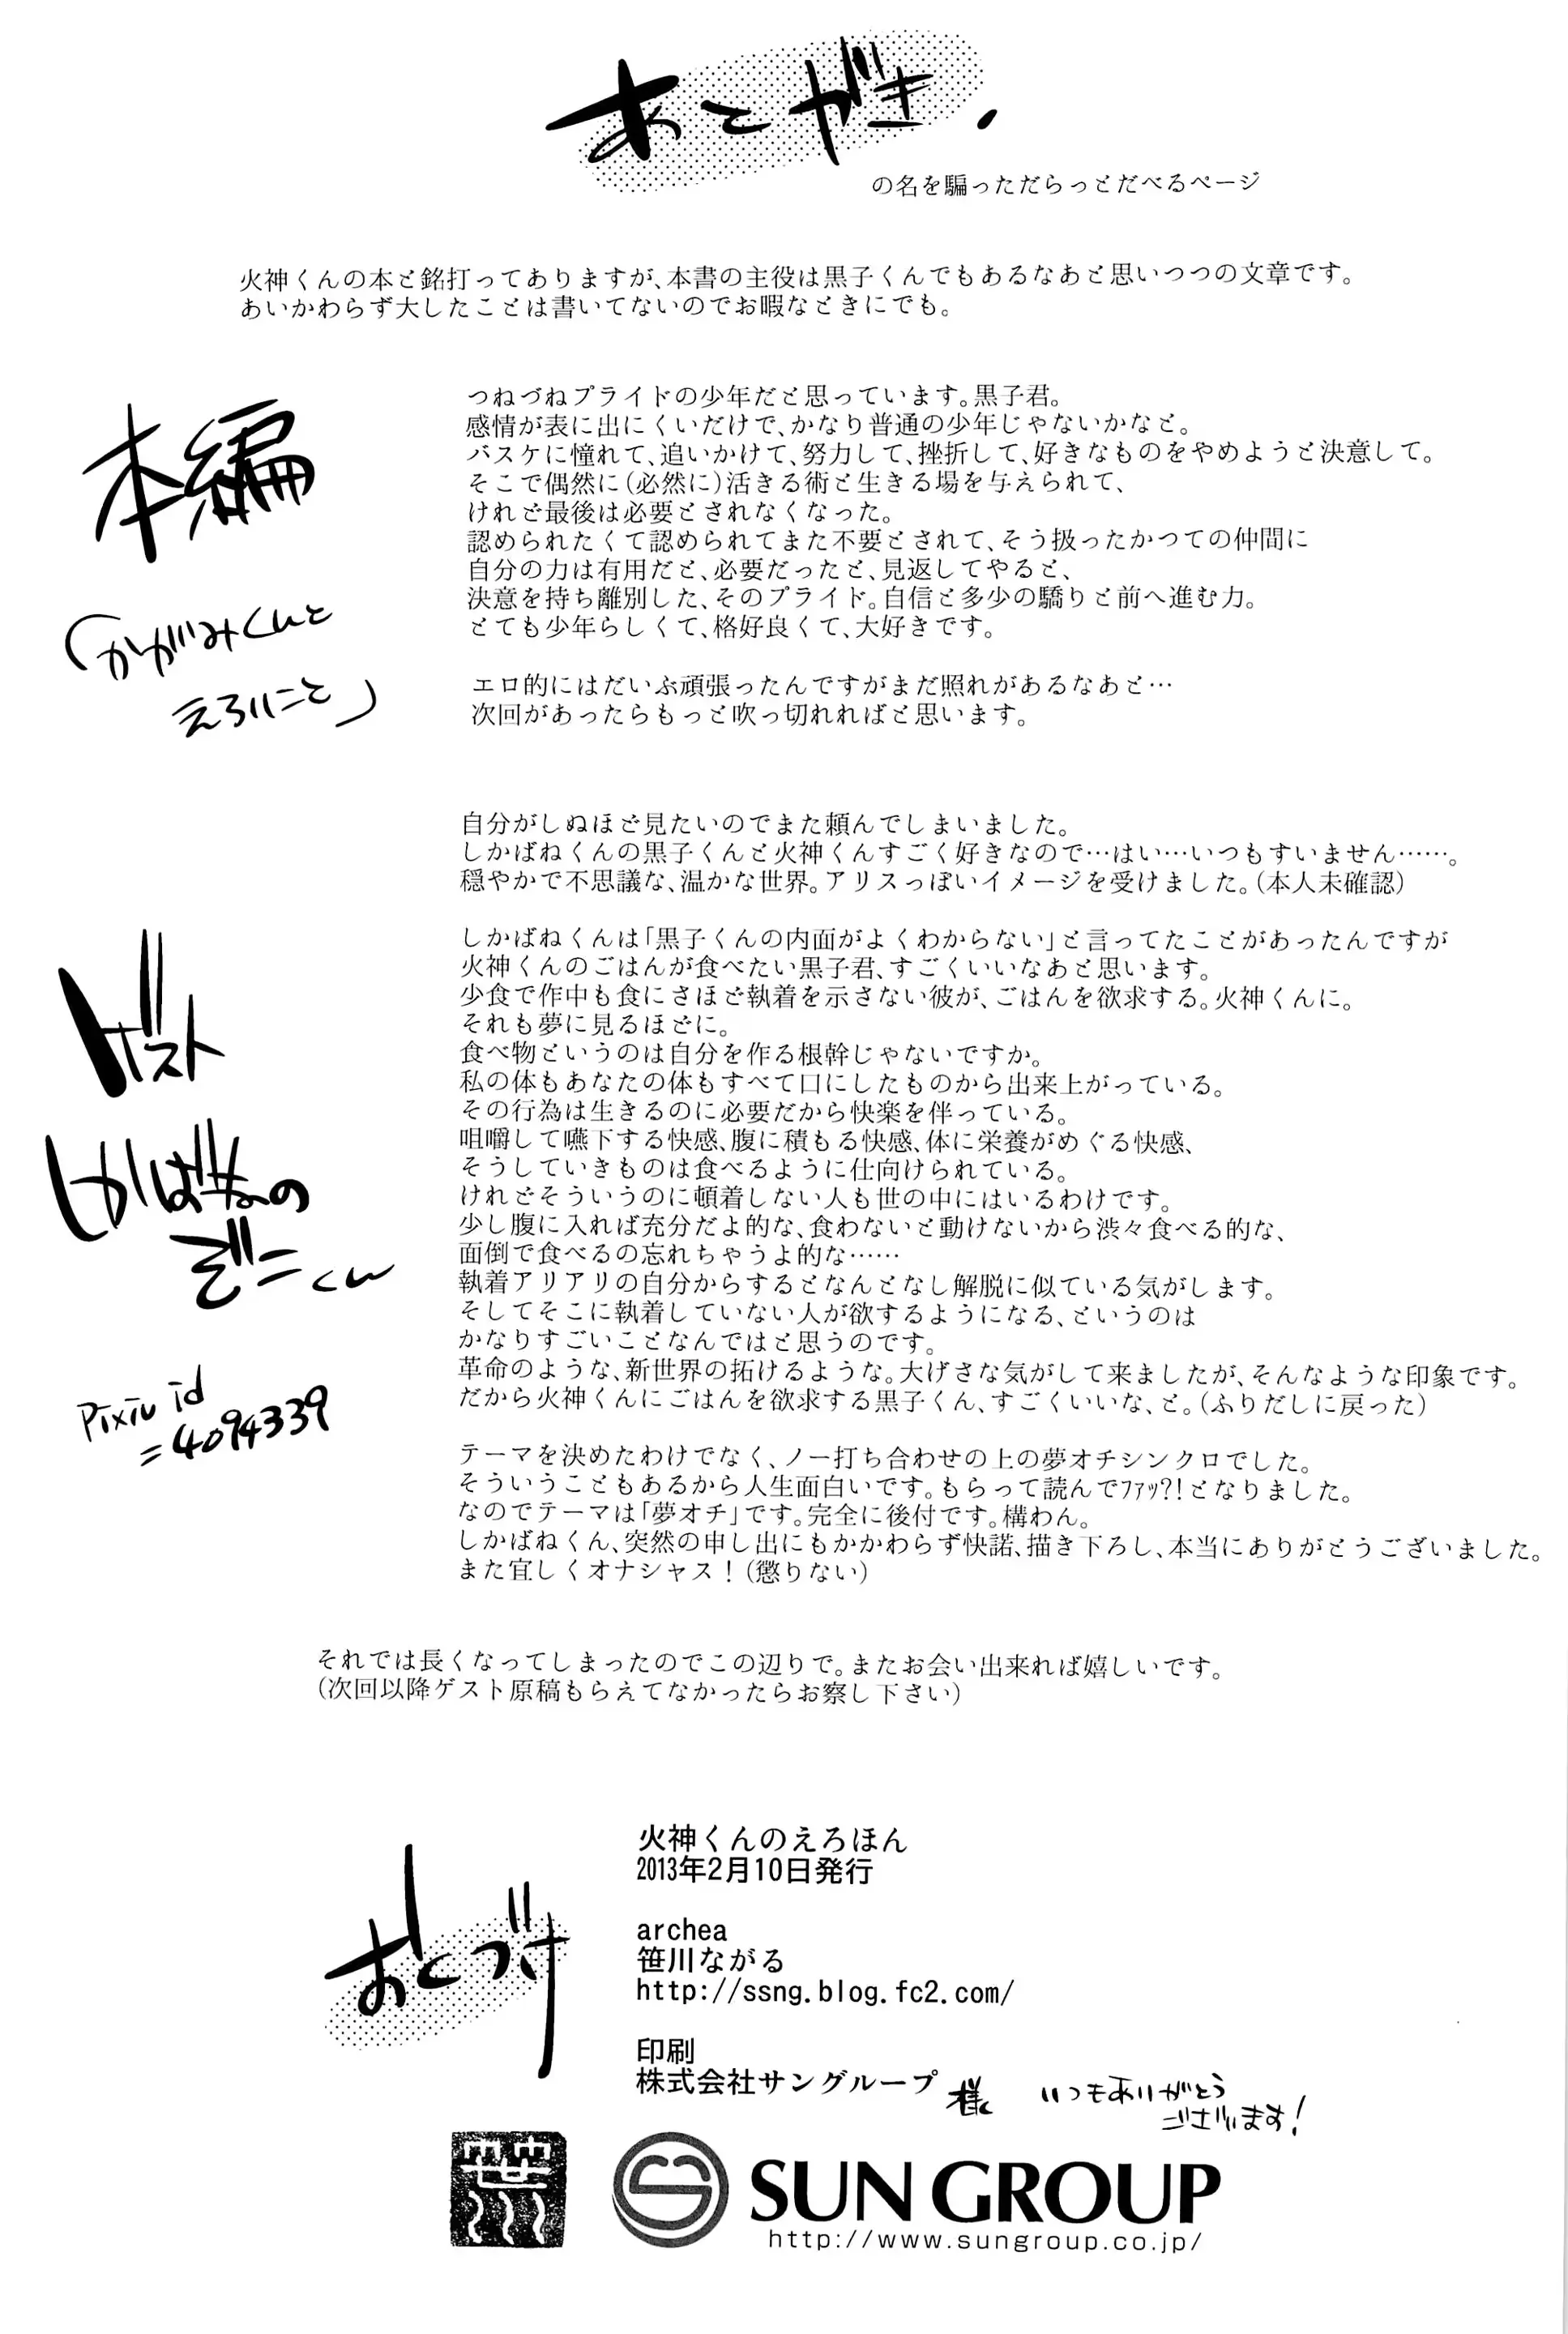 あとがき.
の名を騙っただらっとだべるページ
火神くんの本と銘打ってありますが、本書の主役は黒子くんでもあるなあと思いつつの文章です。
あいかわらず大したことは書いてないのでお暇なときにでも。
本編
「かがみくんと
えろいこと」
つねづねプライドの少年だと思っています。黒子君。
感情が表に出にくいだけで、かなり普通の少年じゃないかなと。
バスケに憧れて、追いかけて、努力して、挫折して、好きなものをやめようと決意して。
そこで偶然に(必然に)活きる術と生きる場を与えられて、
けれど最後は必要とされなくなった。
認められたくて認められてまた不要とされて、そう扱ったかつての仲間に
自分の力は有用だと、必要だったと、見返してやると、
決意を持ち離別した、そのプライド。自信と多少の驕りと前へ進む力。
とても少年らしくて、格好良くて、大好きです。
エロ的にはだいぶ頑張ったんですがまだ照れがあるなあと…
次回があったらもっと吹っ切れればと思います。
ゲスト
しかばねの
ぞにくん
Pixiv id
=4094339
自分がしぬほど見たいのでまた頼んでしまいました。
しかばねくんの黒子くんと火神くんすごく好きなので…はい…いつもすいません……。
穏やかで不思議な、温かな世界。アリスっぽいイメージを受けました。(本人未確認)
しかばねくんは「黒子くんの内面がよくわからない」と言ってたことがあったんですが
火神くんのごはんが食べたい黒子君、すごくいいなあと思います。
少食で作中も食にさほど執着を示さない彼が、ごはんを欲求する。火神くんに。
それも夢に見るほどに。
食べ物というのは自分を作る根幹じゃないですか。
私の体もあなたの体もすべて口にしたものから出来上がっている。
その行為は生きるのに必要だから快楽を伴っている。
咀嚼して嚥下する快感、腹に積もる快感、体に栄養がめぐる快感、
そうしていきものは食べるように仕向けられている。
けれどそういうのに頓着しない人も世の中にはいるわけです。
少し腹に入れば充分だよ的な、食わないと動けないから渋々食べる的な、
面倒で食べるの忘れちゃうよ的な……
執着アリアリの自分からするとなんとなし解脱に似ている気がします。
そしてそこに執着していない人が欲するようになる、というのは
かなりすごいことなんではと思うのです。
革命のような、新世界の拓けるような。大げさな気がして来ましたが、そんなような印象です。
だから火神くんにごはんを欲求する黒子くん、すごくいいな、と。(ふりだしに戻った)
テーマを決めたわけでなく、ノー打ち合わせの上の夢オチシンクロでした。
そういうこともあるから人生面白いです。もらって読んでﾌｧｯ?!となりました。
なのでテーマは「夢オチ」です。完全に後付です。構わん。
しかばねくん、突然の申し出にもかかわらず快諾、描き下ろし、本当にありがとうございました。
また宜しくオナシャス！(懲りない)
それでは長くなってしまったのでこの辺りで。またお会い出来れば嬉しいです。
(次回以降ゲスト原稿もらえてなかったらお察し下さい)
おくづけ
火神くんのえろほん
2013年2月10日発行
archea
笹川ながる
http://ssng.blog.fc2.com/
印刷
株式会社サングループ様 いつもありがとう
ございます!
SUN GROUP
http://www.sungroup.co.jp/